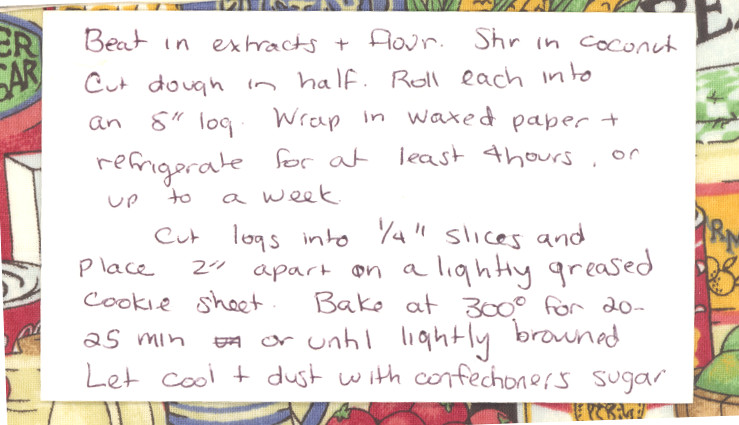 Beat in extracts + flour. Stir in coconut
Cut dough in half. Roll each into
an 8" log. Wrap in waxed paper +
refrigerate for at least 4 hours, or
up to a week.
Cut logs into 1/4" slices and
Place 2" apart on a lightly greased
Cookie sheet. Bake at 300° for 20-
25 min or until lightly browned
Let cool + dust with confectioners sugar